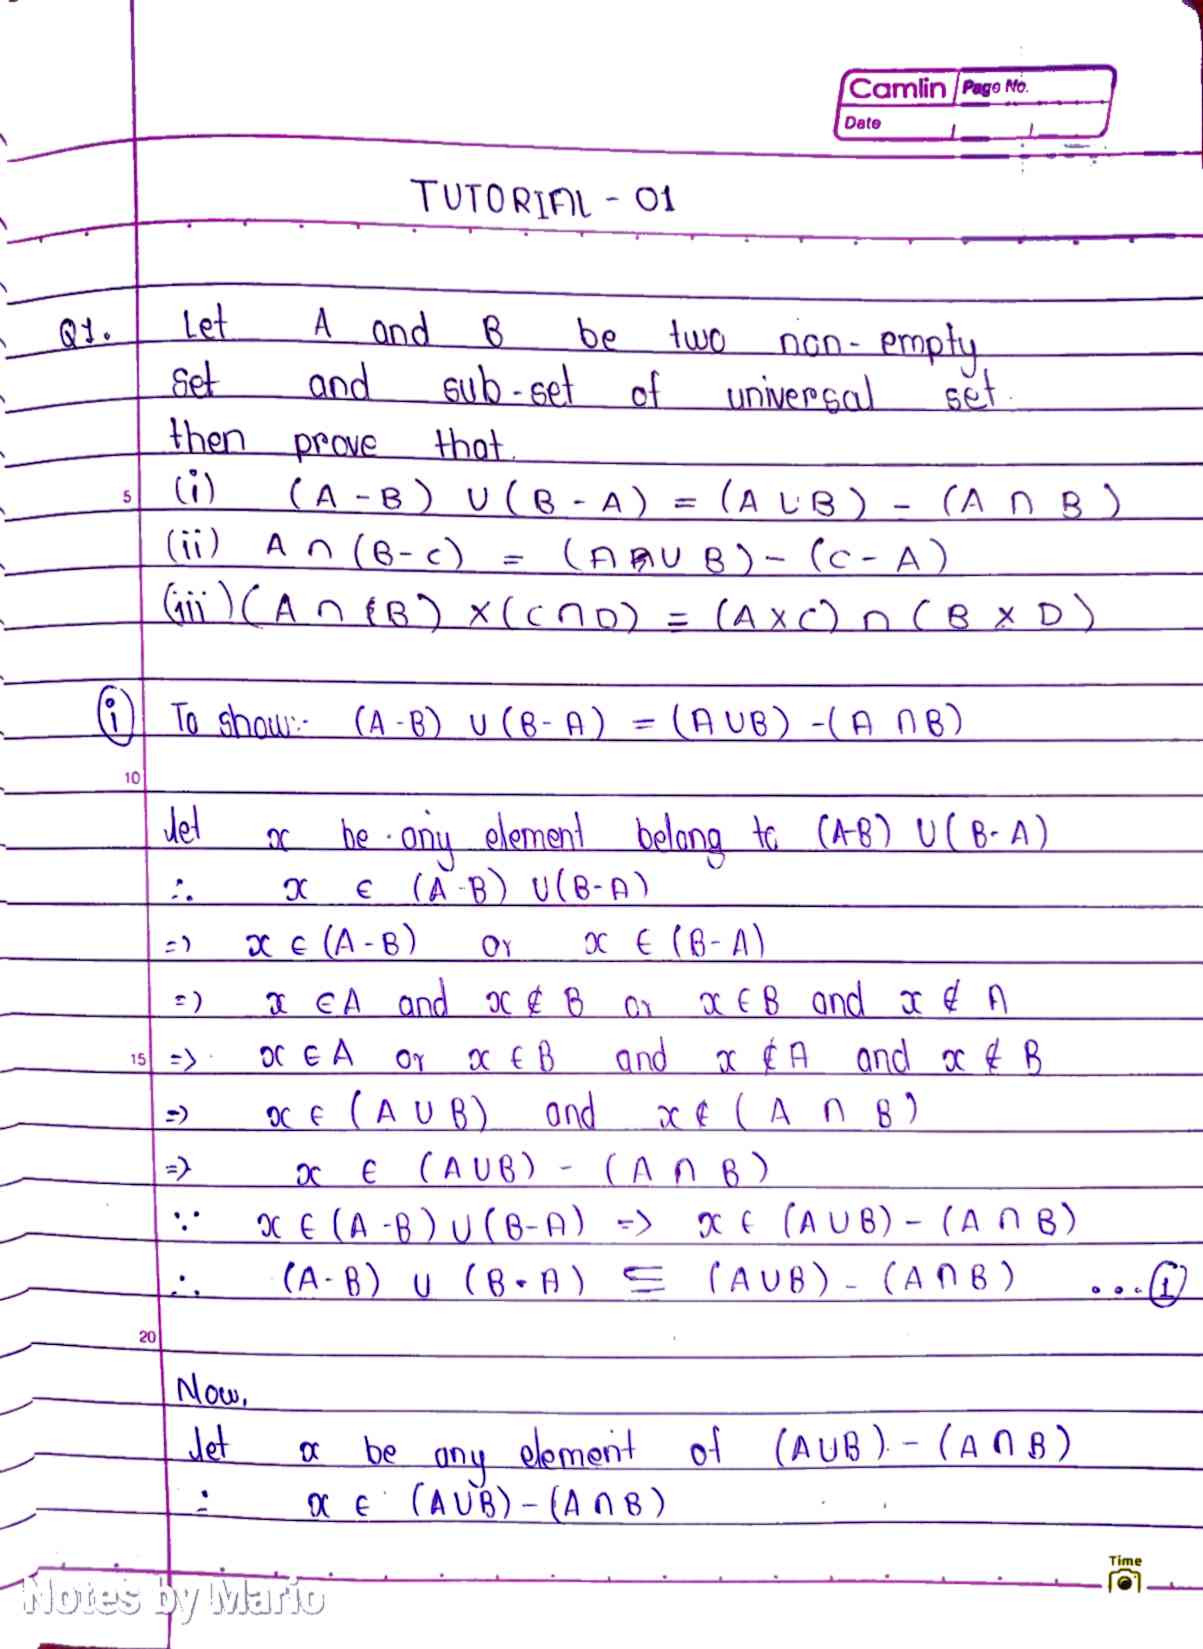 Camlin Page No.
Date
TUTORIAL - 01
Q1. Let A and B be two non-empty
set and sub-set of universal set.
then prove that.
5 (i) (A - B) ∪ (B - A) = (A ∪ B) - (A ∩ B)
(ii) A ∩ (B - C) = (A ∪ B) - (C - A)
(iii) (A ∩ B) × (C ∩ D) = (A × C) ∩ (B × D)
(i) To show:- (A - B) ∪ (B - A) = (A ∪ B) - (A ∩ B)
10
Let x be any element belong to (A-B) ∪ (B - A)
∴ x ∈ (A - B) ∪ (B - A)
=> x ∈ (A - B) or x ∈ (B - A)
=> x ∈ A and x ∉ B or x ∈ B and x ∉ A
15 => x ∈ A or x ∈ B and x ∉ A and x ∉ B
=> x ∈ (A ∪ B) and x ∉ (A ∩ B)
=> x ∈ (A ∪ B) - (A ∩ B)
∵ x ∈ (A - B) ∪ (B - A) => x ∈ (A ∪ B) - (A ∩ B)
∴ (A - B) ∪ (B - A) ⊆ (A ∪ B) - (A ∩ B) ...(1)
20
Now,
Let x be any element of (A ∪ B) - (A ∩ B)
∴ x ∈ (A ∪ B) - (A ∩ B)
Time
Notes by Mario